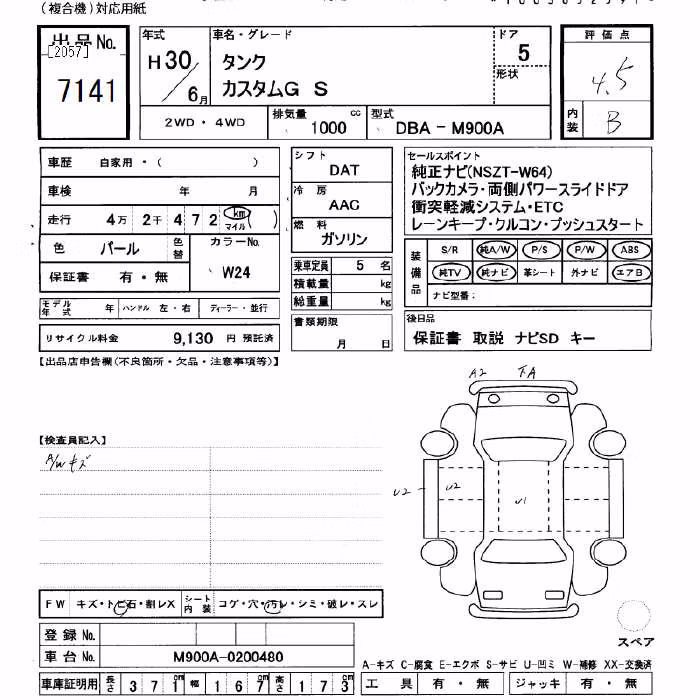 (複合機)対応用紙
出品No.
[2057]
7141
年式
H30/6月
車名・グレード
タンク
カスタムG S
ドア
5
形状
評価点
4.5
内装
B
2WD・4WD
排気量
1000
cc
型式
DBA-M900A
車歴 自家用・( )
車検 年 月
走行 4万 2千 4 7 2 (km マイル)
色 パール 色替
カラーNo.
W24
保証書 有・無
モデル年式 年 ハンドル 左・右 ディーラー・並行
リサイクル料金 9,130 円 預託済
シフト
DAT
冷房
AAC
燃料
ガソリン
乗車定員 5 名
積載量 kg
総重量 kg
書類期限
月 日
セールスポイント
純正ナビ(NSZT-W64)
バックカメラ・両側パワースライドドア
衝突軽減システム・ETC
レーンキープ・クルコン・プッシュスタート
装備品
S/R 純A/W P/S P/W ABS
純TV 純ナビ 革シート 外ナビ エアB
ナビ型番:
後日品
保証書 取説 ナビSD キー
【出品店申告欄(不良箇所・欠品・注意事項等)】
【検査員記入】
A/Wキズ
A2 下A
U2 U2 U1
FW キズ・トビ石・割レX シート内装 コゲ・穴・汚レ・シミ・破レ・スレ
登録No.
車台No. M900A-0200480
車庫証明用 長さ 371cm 幅 167cm 高さ 173cm
スペア
A-キズ C-腐食 E-エクボ S-サビ U-凹ミ W-補修 XX-交換済
工具 有・無 ジャッキ 有・無